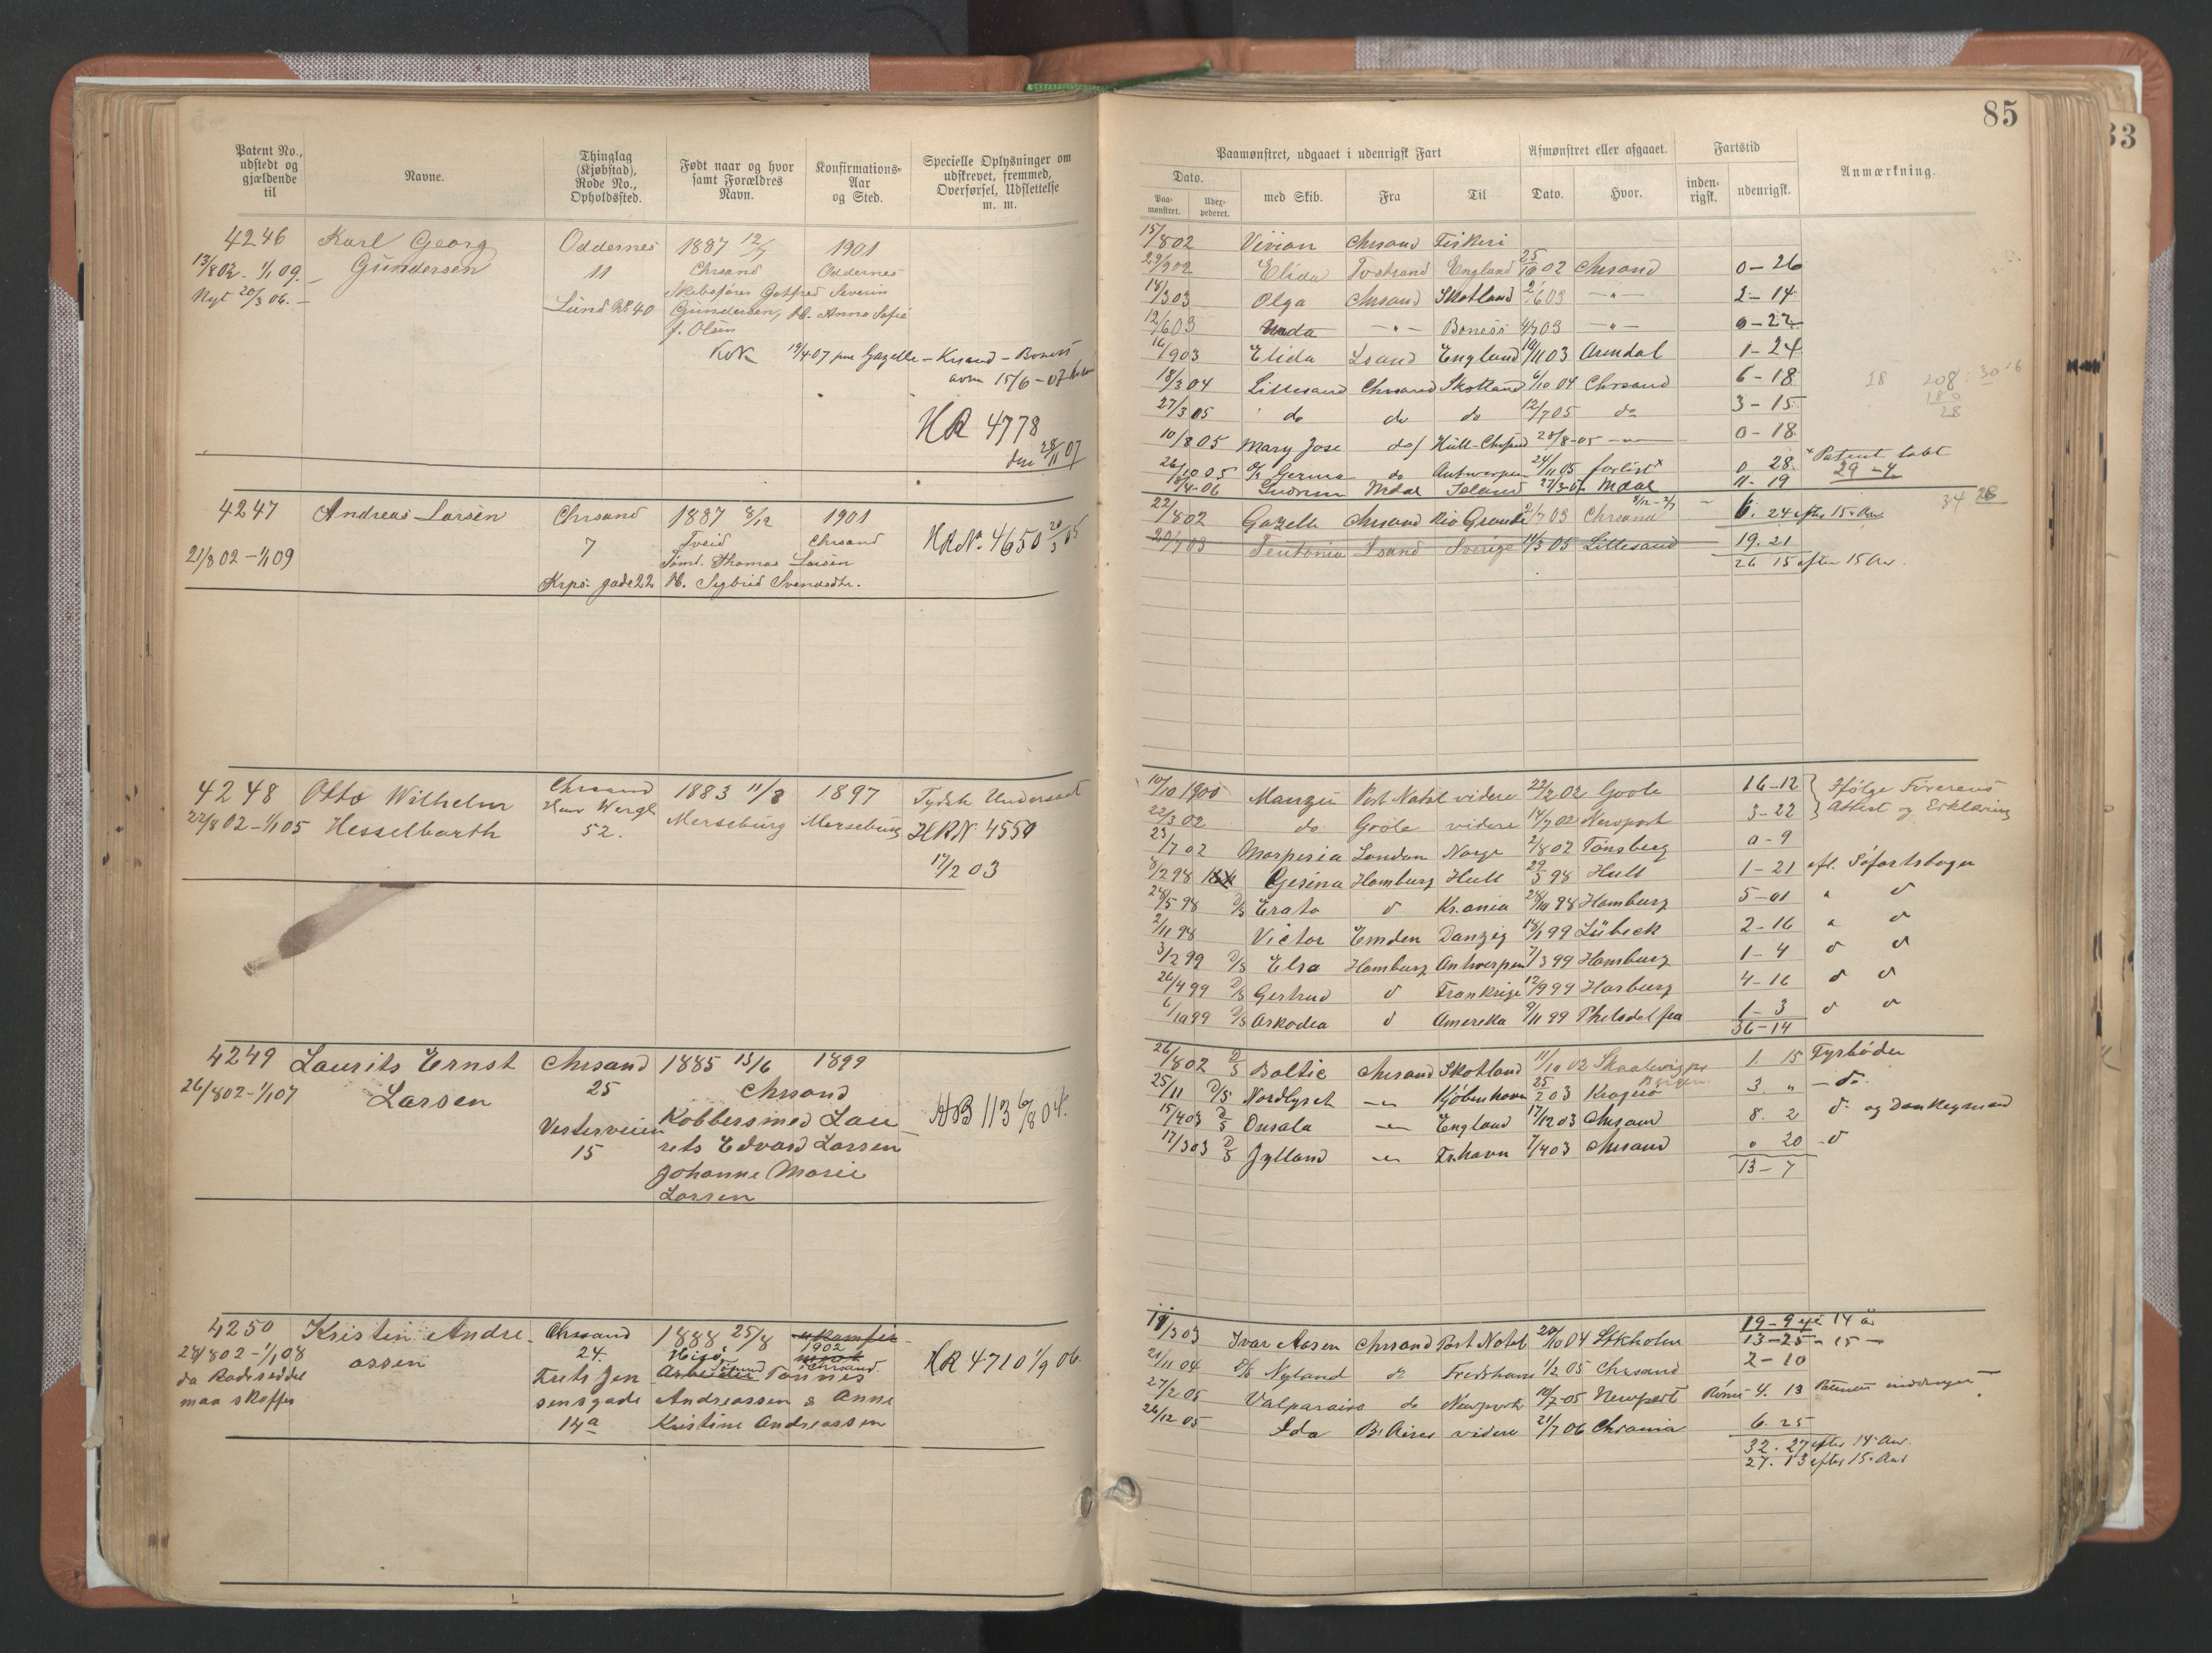 85
33
Patent No., udstedt og gjældende til
Navne.
Thinglag (Kjøbstad), Rode No., Opholdssted.
Født naar og hvor samt Forældres Navn.
Konfirmations-Aar og Sted.
Specielle Oplysninger om udskrevet, fremmed, Overførsel, Udslettelse m. m.
Paamønstret, udgaaet i udenrigsk Fart
Afmønstret eller afgaaet.
Fartstid
Anmærkning.
Dato.
Paa-mønstret.
Udex-pederet.
med Skib.
Fra
Til
Dato.
Hvor.
inden-rigsk.
udenrigsk.
4246 Karl Georg Oddernes 1887 12/7 1901
13/8 02 - 1/1 09. Gundersen 11 Chrsand Oddernes
Nyt 20/3 06. Skibsfører Gotfred Severin
Lund No 40 Gundersen, H. Anna Sofie
f. Olsen
Kok 19/4 07 pm Gazelle - Krsand - Boness
avm 15/6 - 07
HR 4778
28/11 07
15/8 02 Vivian Chrsand Fiskeri
29/9 02 Elida Tvstrand England 25/10 02 Chrsand 0-26
18/3 03 Olga Chrsand Skotland 2/6 03 -"- 2-14
12/6 03 -"- Boness 4/7 03 -"- 0-22
16/9 03 Elida Lsand England 10/11 03 Arendal 1-24
18/3 04 Lillesand Chrsand Skotland 6/10 04 Chrsand 6-18
27/3 05 do do do 12/7 05 do 3-15
10/8 05 Mary Jose do Hull-Chrsand 28/8-05 -"- 0-18
26/10 05 do Antwerpen 24/11 05 forlist x 0 28 x Patent tabt
18/4-06 Gudrun Mdal Island 27/3-07 Mdal 11-19 29-4
4247 Andreas Larsen Chrsand 1887 8/12 1901
21/8 02 - 1/1 09 7 Tveid Chrsand HR No. 4650 20/3 05
Tømt. Thomas Larsen
Krps. gade 22 H. Sigbrid Svendsdtr.
22/8 02 Gazelle Chrsand Rio Grande 2/7 03 Chrsand 6. 24 efter 15 Aar
20/7 03 Teutonia Lsand Sverige 14/3 05 Lillesand 19. 21
26 15 efter 15 Aar.
4248 Otto Wilhelm Chrsand 1883 11/8 1897 Tydsk Undersaat
22/8 02 - 1/1 05 Hesselbarth Henr Wergl 52. Merseburg Merseburg HRN 4550
17/12 03
10/10 1900 Port Natal videre 22/2 02 Goole 16-12 Ifølge Førerens
22/3 02 do. Goole videre 14/7 02 Newport 3-22 Attest og Erklæring
23/7 02 London Norge 2/8 02 Tønsberg 0-9
8/2 98 Gesina Hamburg Hull 29/3 98 Hull 1-21 efl. Søfartsbogen
28/5 98 D/S Erato d Kr.ania 28/10 98 Hamburg 5-01 " d
2/11 98 Victor Emden Danzig 18/1 99 Lübeck 2-16 " d
3/2 99 D/S Elsa Hamburg Antwerpen 7/3 99 Hamburg 1-4 d d
26/4 99 D/S Gertrud d Frankrige 12/9 99 Harburg 4-16 d d
6/10 99 D/S Askodea d Amerika 9/11 99 Philadelfia 1-3 d d
36-14
4249 Laurits Ernst Chrsand 1885 13/6 1899
26/8 02 - 1/1 07 Larsen 25 Chrsand HB 113 6/8 04.
Vesterveien Kobbersmed Lau
15 rits Edvard Larsen
Johanne Marie
Larsen
26/8 02 D/S Baltic Chrsand Skotland 11/10 02 1. 15 Fyrbøder
25/11 D/S Nordlyset -"- Kjøbenhavn 25/2 03 Kragerø 3. " - do.
15/4 03 D/S Onsala -"- England 17/12 03 Chrsand 8. 2 d. og Donkeymand
17/3 03 D/S Jylland -"- Fr.havn 7/4 03 Chrsand " 20 -d
13-7
4250 Kristen Andre- Chrsand 1888 25/8 1902
28/8 02 - 1/1 08 assen 24. Chrsand HR 4710 1/9 06.
da Rodeseddel Frits Jen Arbeider Tønnes
maa skaffes sensgade Andreassen & Anne
14a Kristine Andreassen
19-9 14 a
11/3 03 Ivar Aasen Chrsand Port Natal 20/10 04 Stkholm 13-25 - 15 -
21/11 04 D/S Nyland do 1/2 05 Chrsand 2-10
27/2 05 Valparaiso do Newport 10/7-05 Newport Rømt 4. 13
26/12 05 Ida B. Aires videre 21/7 06 Chrania 6. 25
32. 27 efter 14 Aar.
27. 13 efter 15 Aar